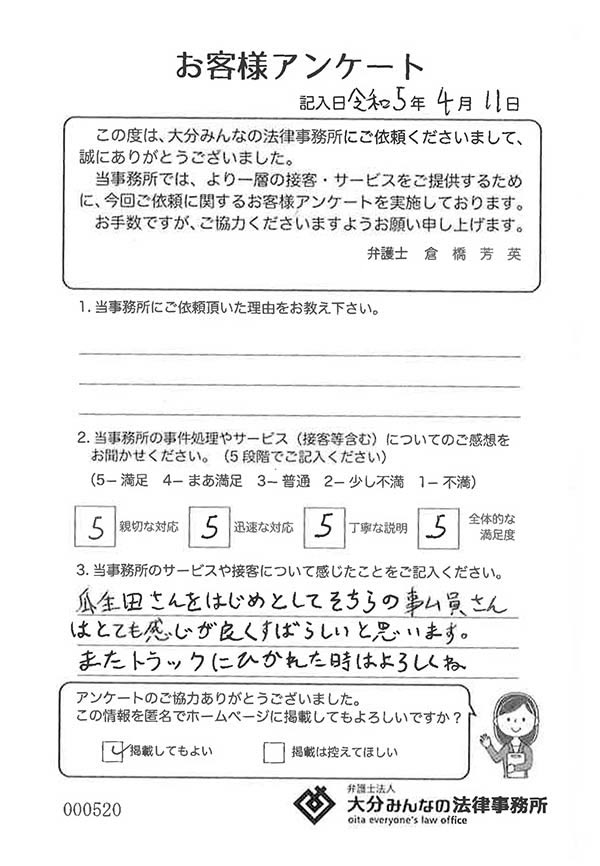 お客様アンケート
記入日 令和5年 4月 11日
この度は、大分みんなの法律事務所にご依頼くださいまして、
誠にありがとうございました。
当事務所では、より一層の接客・サービスをご提供するため
に、今回ご依頼に関するお客様アンケートを実施しております。
お手数ですが、ご協力くださいますようお願い申し上げます。
弁護士 倉橋芳英
1. 当事務所にご依頼頂いた理由をお教え下さい。
2. 当事務所の事件処理やサービス（接客等含む）についてのご感想を
お聞かせください。（5段階でご記入ください）
（5－満足 4－まあ満足 3－普通 2－少し不満 1－不満）
5 親切な対応 5 迅速な対応 5 丁寧な説明 5 全体的な満足度
3. 当事務所のサービスや接客について感じたことをご記入ください。
瓜生田さんをはじめとしてそちらの事ム員さん
はとても感じが良くすばらしいと思います。
またトラックにひかれた時はよろしくね
アンケートのご協力ありがとうございました。
この情報を匿名でホームページに掲載してもよろしいですか？
掲載してもよい 掲載は控えてほしい
000520
弁護士法人
大分みんなの法律事務所
oita everyone's law office